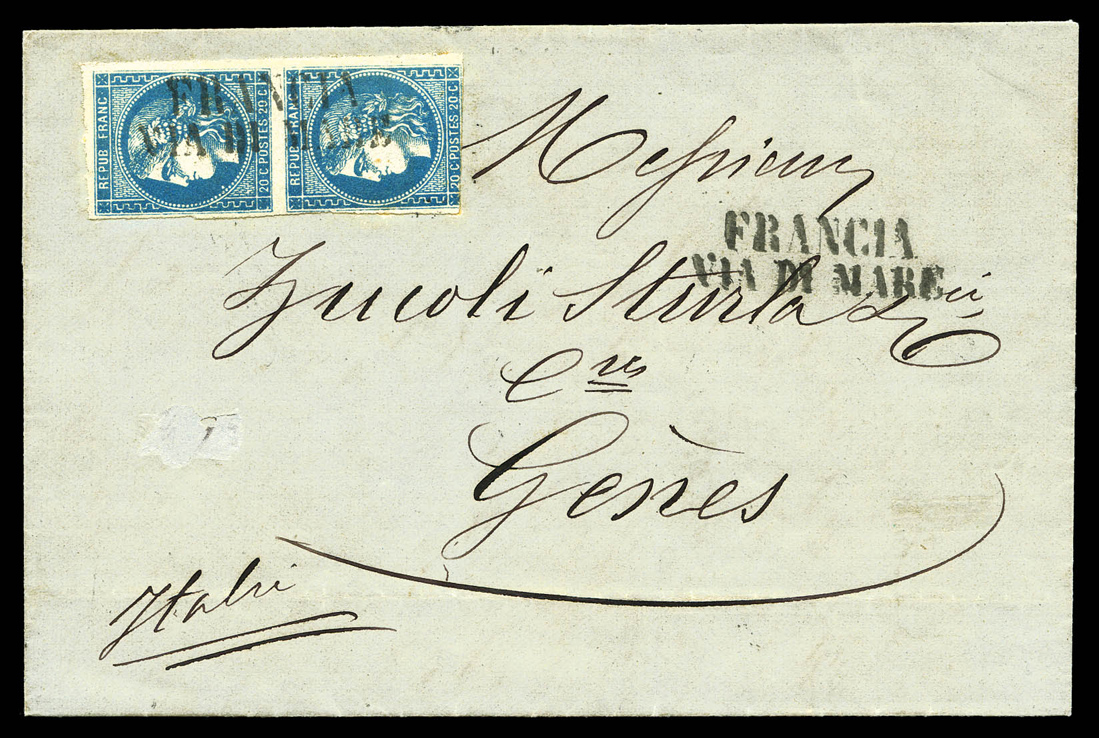 REPUB FRANC
20 C POSTES 20 C
REPUB FRANC
20 C POSTES 20 C
FRANCIA
VIA DI MARE
Messieurs
FRANCIA
VIA DI MARE
Zucoli Sturla &
Genes
Italie